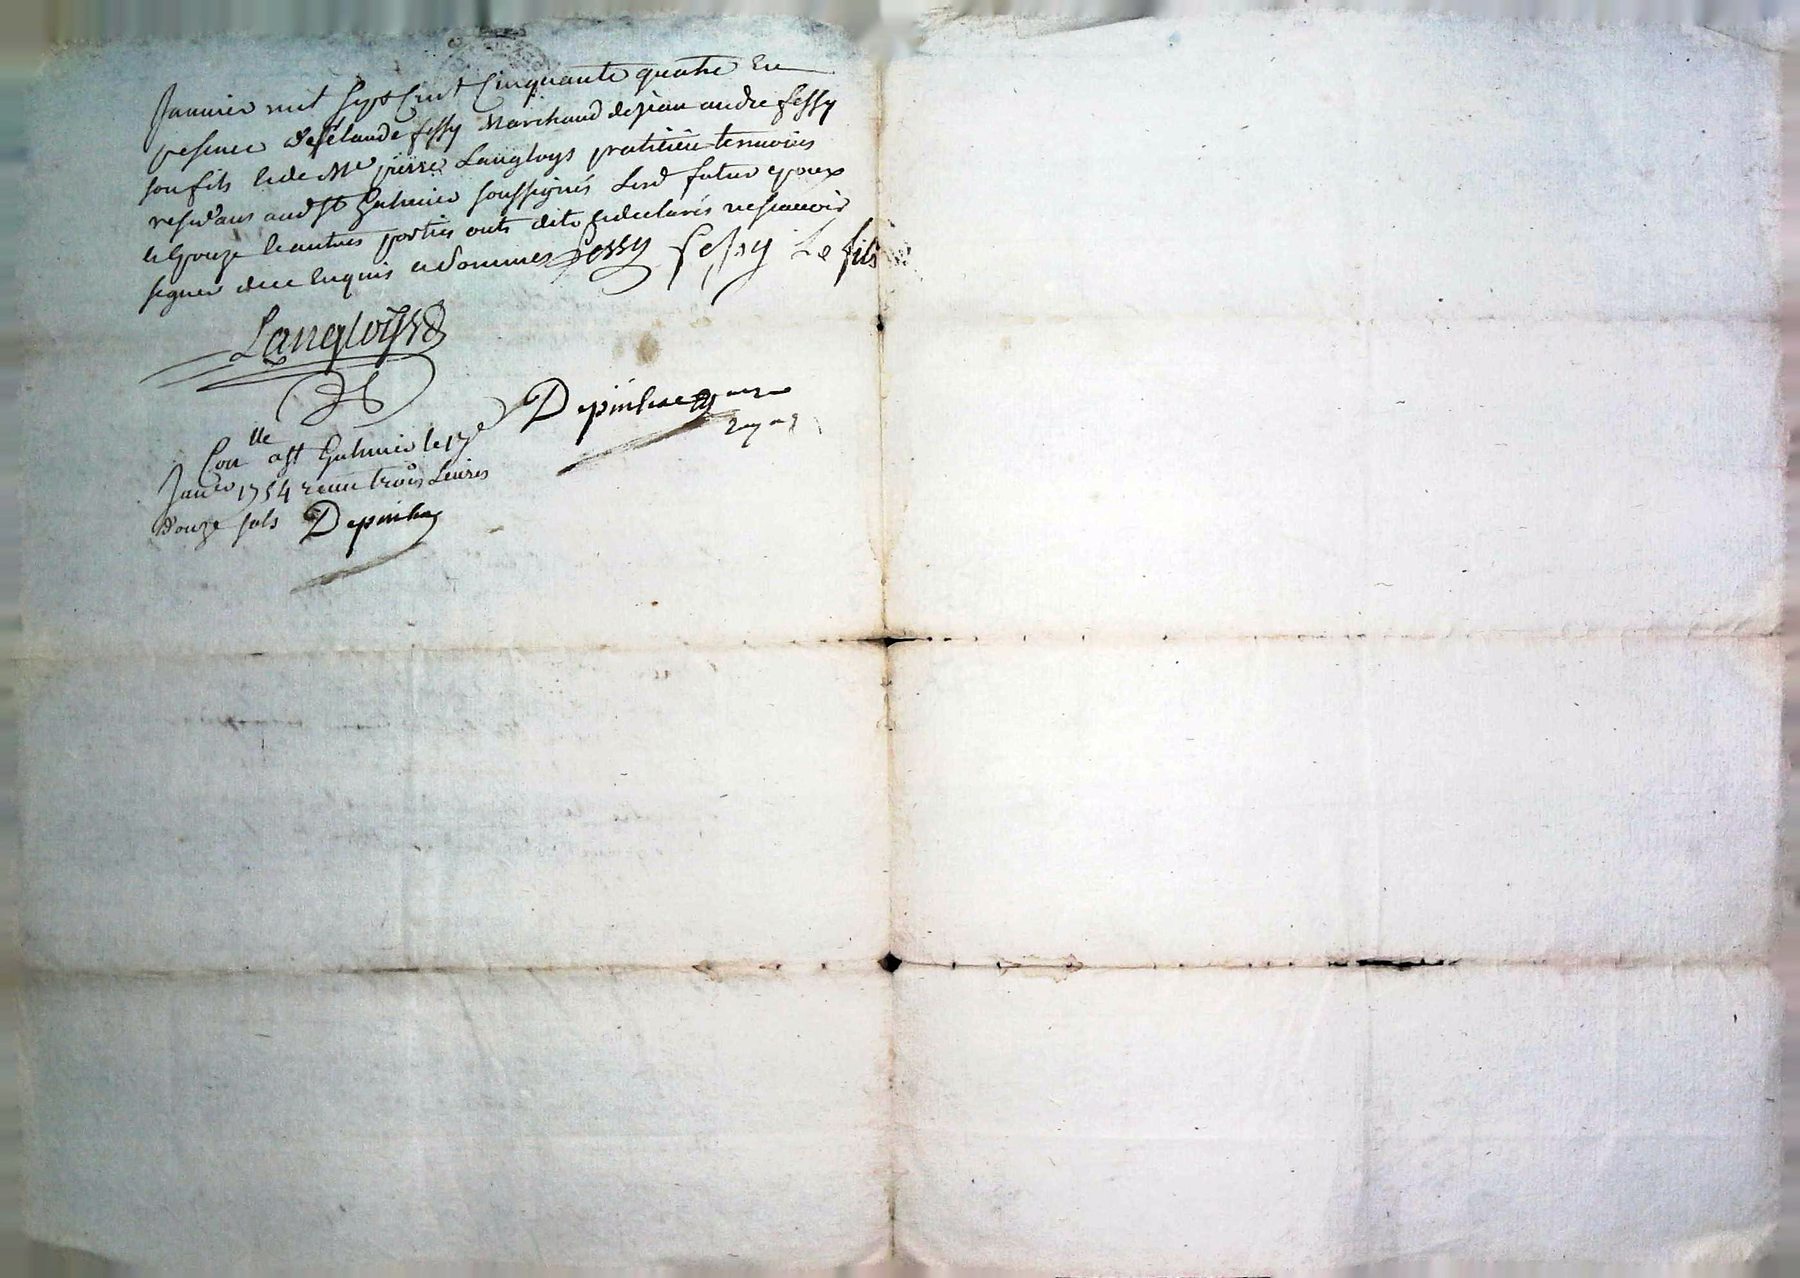 Janvier mil Sept Cent Cinquante quatre En
presence de Claude fessy Marchand de jean andre fessy
son fils et de Me pierre Langloys praticien temoins
residans aud St Galmier soussignés Lesd futur epoux
et Epouze et autres parties onts dits et declarés ne scavoir
signer de ce enquis et sommés Fessy fessy Le fils
Langloys
Depinhac
Conlle a St Galmier le 17e
Janer 1754 recu trois Livres
douze sols Depinhac